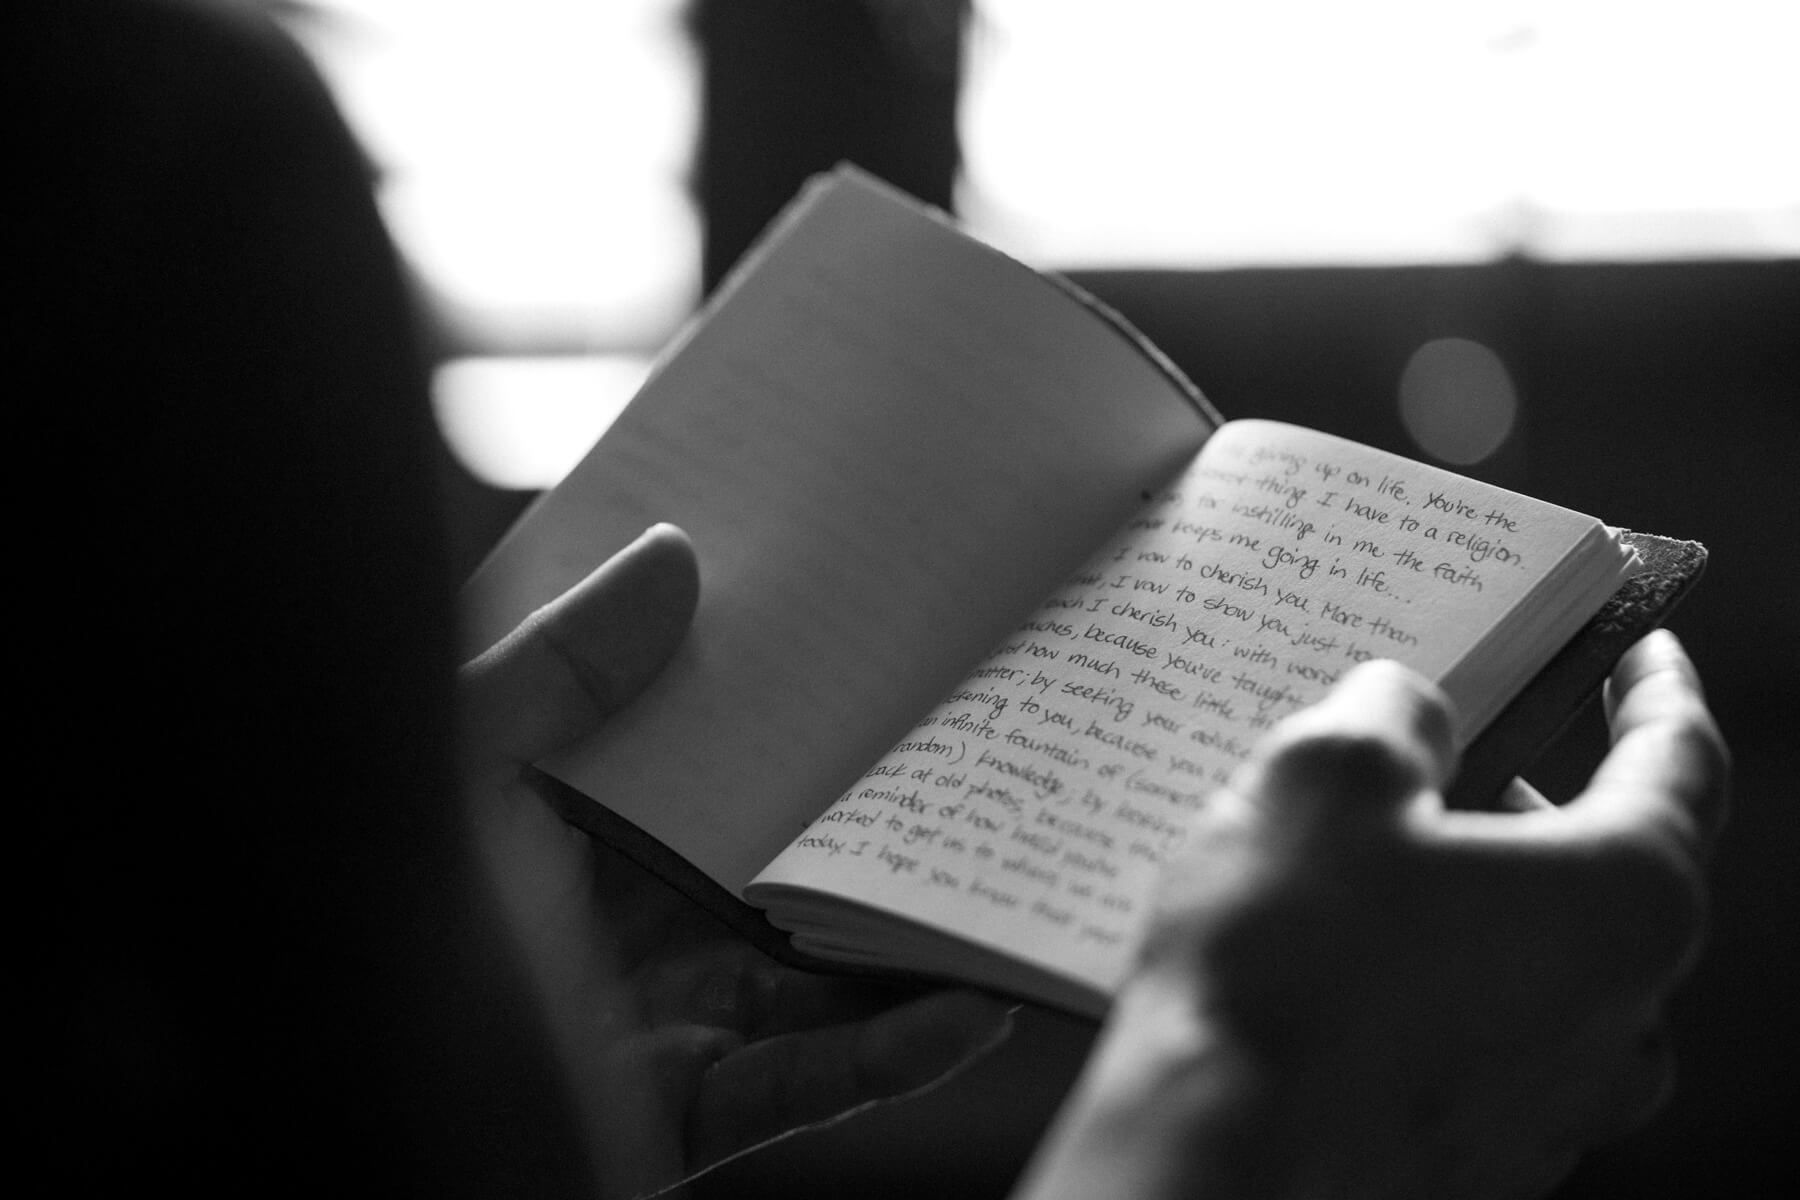 giving up on life. You're the
thing I have to a religion.
for instilling in me the faith
keeps me going in life...
I vow to cherish you. More than
I vow to show you just how
I cherish you: with word
because you've taught
just how much these little
matter; by seeking your advice
listening to you, because you
an infinite fountain of
random) knowledge; by looking
back at old photos, because
a reminder of how hard you've
worked to get us to where we are
today. I hope you know that your